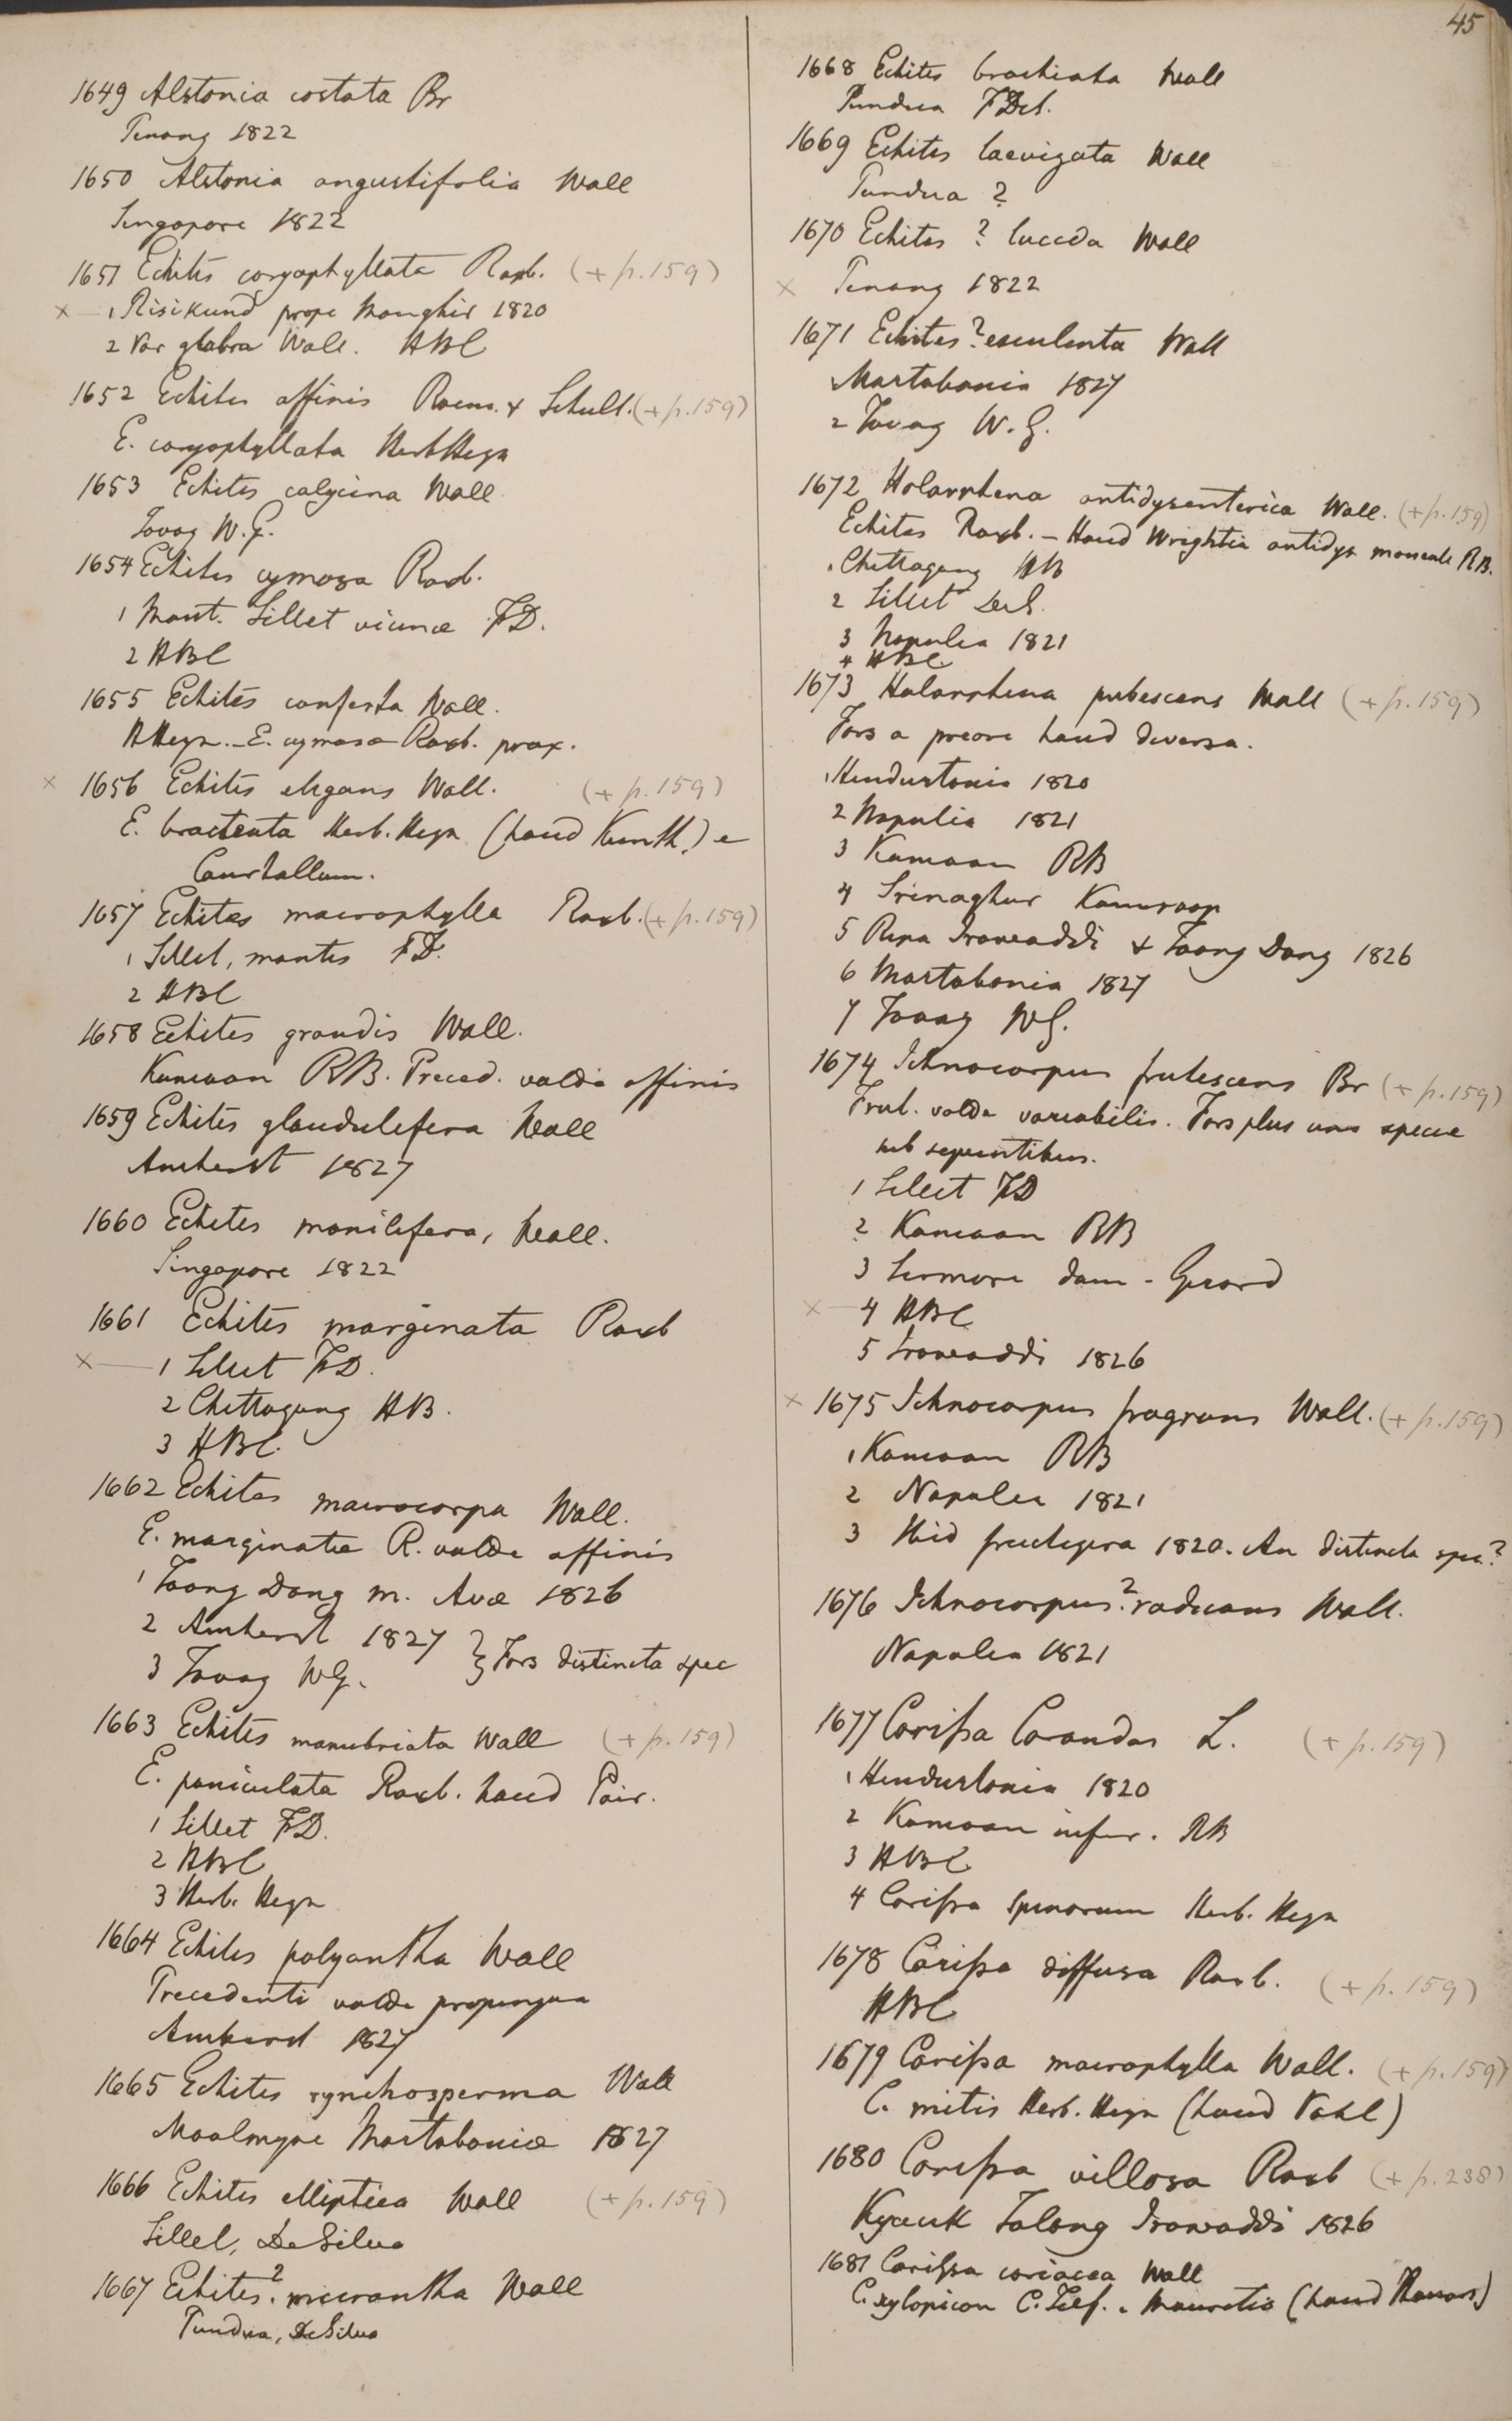 45
1649 Alstonia costata Br
Penang 1822
1650 Alstonia angustifolia Wall
Singapore 1822
1651 Echites caryophyllata Roxb. (+ p. 159)
× — 1 Risikund prope Monghir 1820
2 Var glabra Wall. HBC
1652 Echites affinis Roem. & Schult. (+ p. 159)
E. caryophyllata Herb Heyn
1653 Echites calycina Wall
Tavoy W.G.
1654 Echites cymosa Roxb.
1 Mont. Sillet vicinae FD.
2 HBC
1655 Echites conferta Wall.
HHeyn. – E. cymosae Roxb. prox.
× 1656 Echites elegans Wall. (+ p. 159)
E. bracteata Herb. Heyn (haud Kunth.) e
Courtallum.
1657 Echites macrophylla Roxb. (+ p. 159)
1 Sillet, montes FD.
2 HBC
1658 Echites grandis Wall.
Kamaon RB. Preced. valde affinis
1659 Echites glandulifera Wall
Amherst 1827
1660 Echites monilifera, Wall.
Singapore 1822
1661 Echites marginata Roxb
× — 1 Sillet FD.
2 Chittagong HB.
3 HBC.
1662 Echites macrocarpa Wall.
E. marginatae R. valde affinis
1 Toong Dong m. Avae 1826
2 Amherst 1827 } Fors distincta spec
3 Tavoy WG.
1663 Echites manubriata Wall (+ p. 159)
E. paniculata Roxb. haud Poir.
1 Sillet FD.
2 HBC
3 Herb. Heyn
1664 Echites polyantha Wall
Precedenti valde propinqua
Amherst 1827
1665 Echites rynchosperma Wall
Moalmyne Martabaniae 1827
1666 Echites elliptica Wall (+ p. 159)
Sillet, De Silva
1667 Echites? micrantha Wall
Pundua, DeSilva
1668 Echites brachiata Wall
Pundua FDeS.
1669 Echites laevigata Wall
Pundua ?
1670 Echites ? lucida Wall
× Penang 1822
1671 Echites ? esculenta Wall
1 Martabania 1827
2 Tavoy W.G.
1672 Holarrhena antidysenterica Wall. (+ p. 159)
Echites Roxb. – Haud Wrightia antidys monente RB.
1 Chittagong HB
2 Sillet DeS.
3 Napalia 1821
4 HBC.
1673 Holarrhena pubescens Wall (+ p. 159)
Fors a priore haud diversa.
1 Hindustania 1820
2 Napalia 1821
3 Kamaon RB
4 Srinaghur Kamroop
5 Ripa Irawaddi & Toong Dong 1826
6 Martabania 1827
7 Tavoy WG.
1674 Ichnocarpus frutescens Br (+ p. 159)
Frut. valde variabilis. Fors plus una specie
sub sequentibus.
1 Sillet FD
2 Kamaon RB
3 Sirmore dam - Gerard
× — 4 HBC
5 Irawaddi 1826
× 1675 Ichnocarpus fragrans Wall. (+ p. 159)
1 Kamaon RB
2 Napalia 1821
3 Ibid fructigera 1820. An distincta spec?
1676 Ichnocarpus? radicans Wall.
Napalia 1821
1677 Carissa Carandas L. (+ p. 159)
1 Hindustania 1820
2 Kamaon infer. RB
3 HBC
4 Carissa spinarum Herb. Heyn
1678 Carissa diffusa Roxb. (+ p. 159)
HBC
1679 Carissa macrophylla Wall. (+ p. 159)
C. mitis Herb. Heyn (haud Vahl)
1680 Carissa villosa Roxb (+ p. 238)
Kyauk Talong Irawaddi 1826
1681 Carissa coriacea Wall
C. xylopicon C. Telf. e Mauritio (haud Thouars)